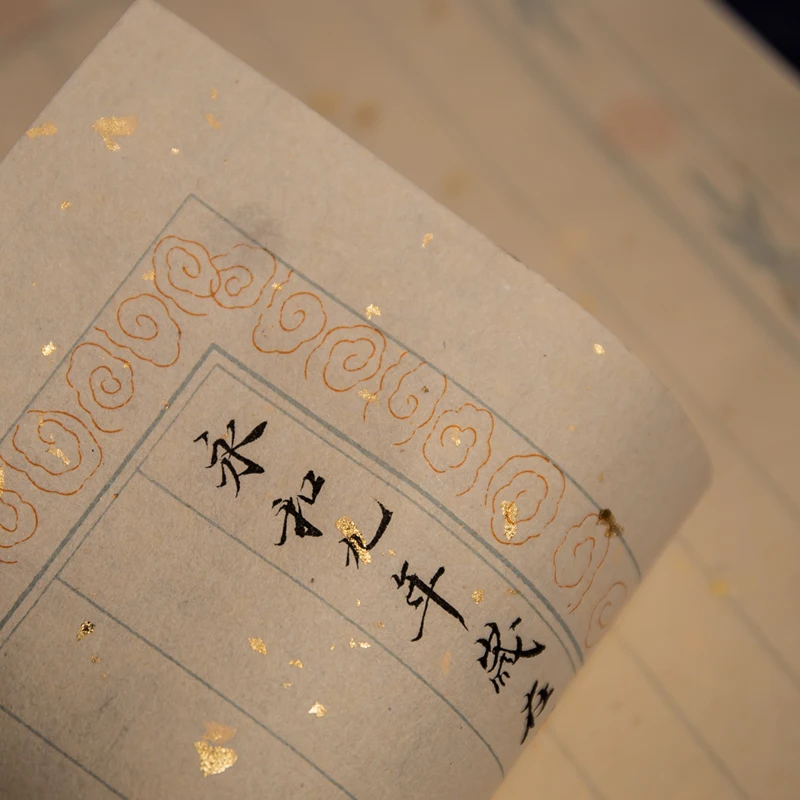 永和九年歲在